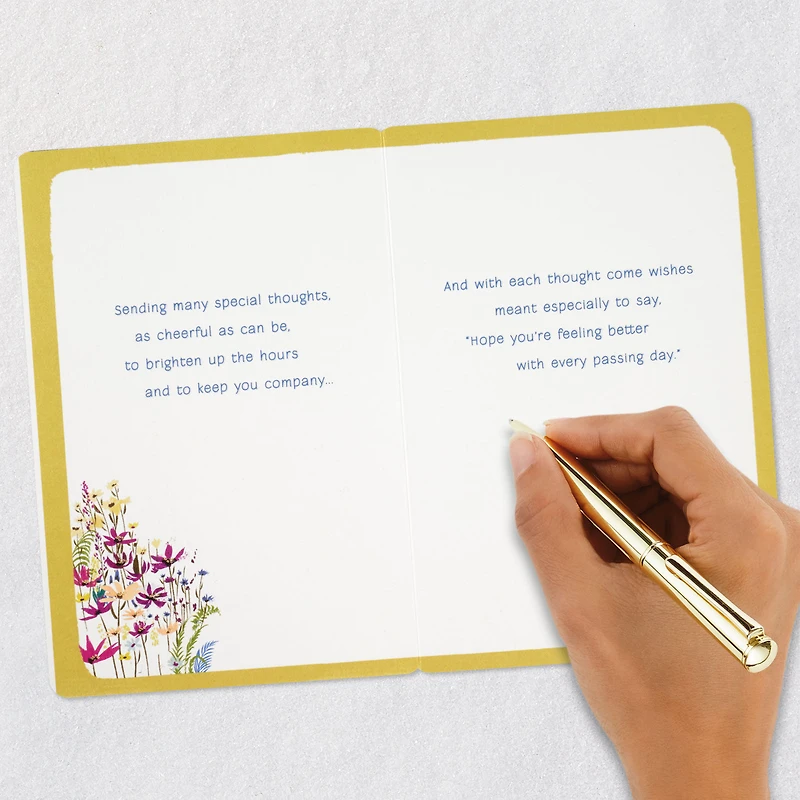 Sending many special thoughts,
as cheerful as can be,
to brighten up the hours
and to keep you company...
And with each thought come wishes
meant especially to say,
"Hope you're feeling better
with every passing day."